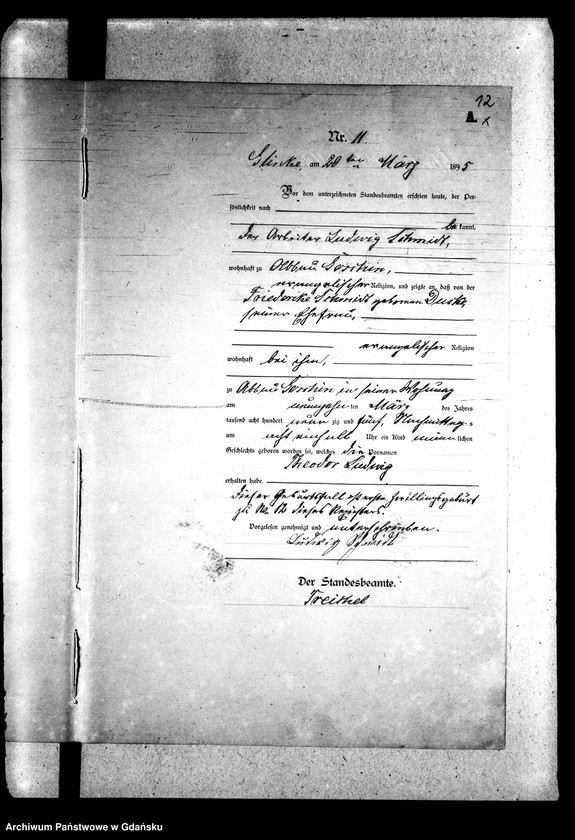 12
A
K
Nr. 11.
am 20ten März 1895
Vor dem unterzeichneten Standesbeamten erschien heute, der Per-
sönlichkeit nach
be kannt,
der Arbeiter Ludwig Schmidt,
wohnhaft zu Abbau
evangelischer Religion, und zeigte an, daß von der
Friederike Schmidt geborenen
seiner Ehefrau,
evangelischer Religion
wohnhaft bei ihm,
zu Abbau in seiner Wohnung
am neunzehn ten März des Jahres
tausend acht hundert neun zig und fünf, Nachmittags
um acht einhalb Uhr ein Kind männ lichen
Geschlechts geboren worden sei, welches die Vornamen
Theodor Ludwig
erhalten habe.
Dieser Geburtsfall ist erste Zwillingsgeburt
zu № 12 dieses Registers.
Vorgelesen, genehmigt und unterschrieben.
Ludwig Schmidt
Der Standesbeamte.
Treichel
Archiwum Państwowe w Gdańsku